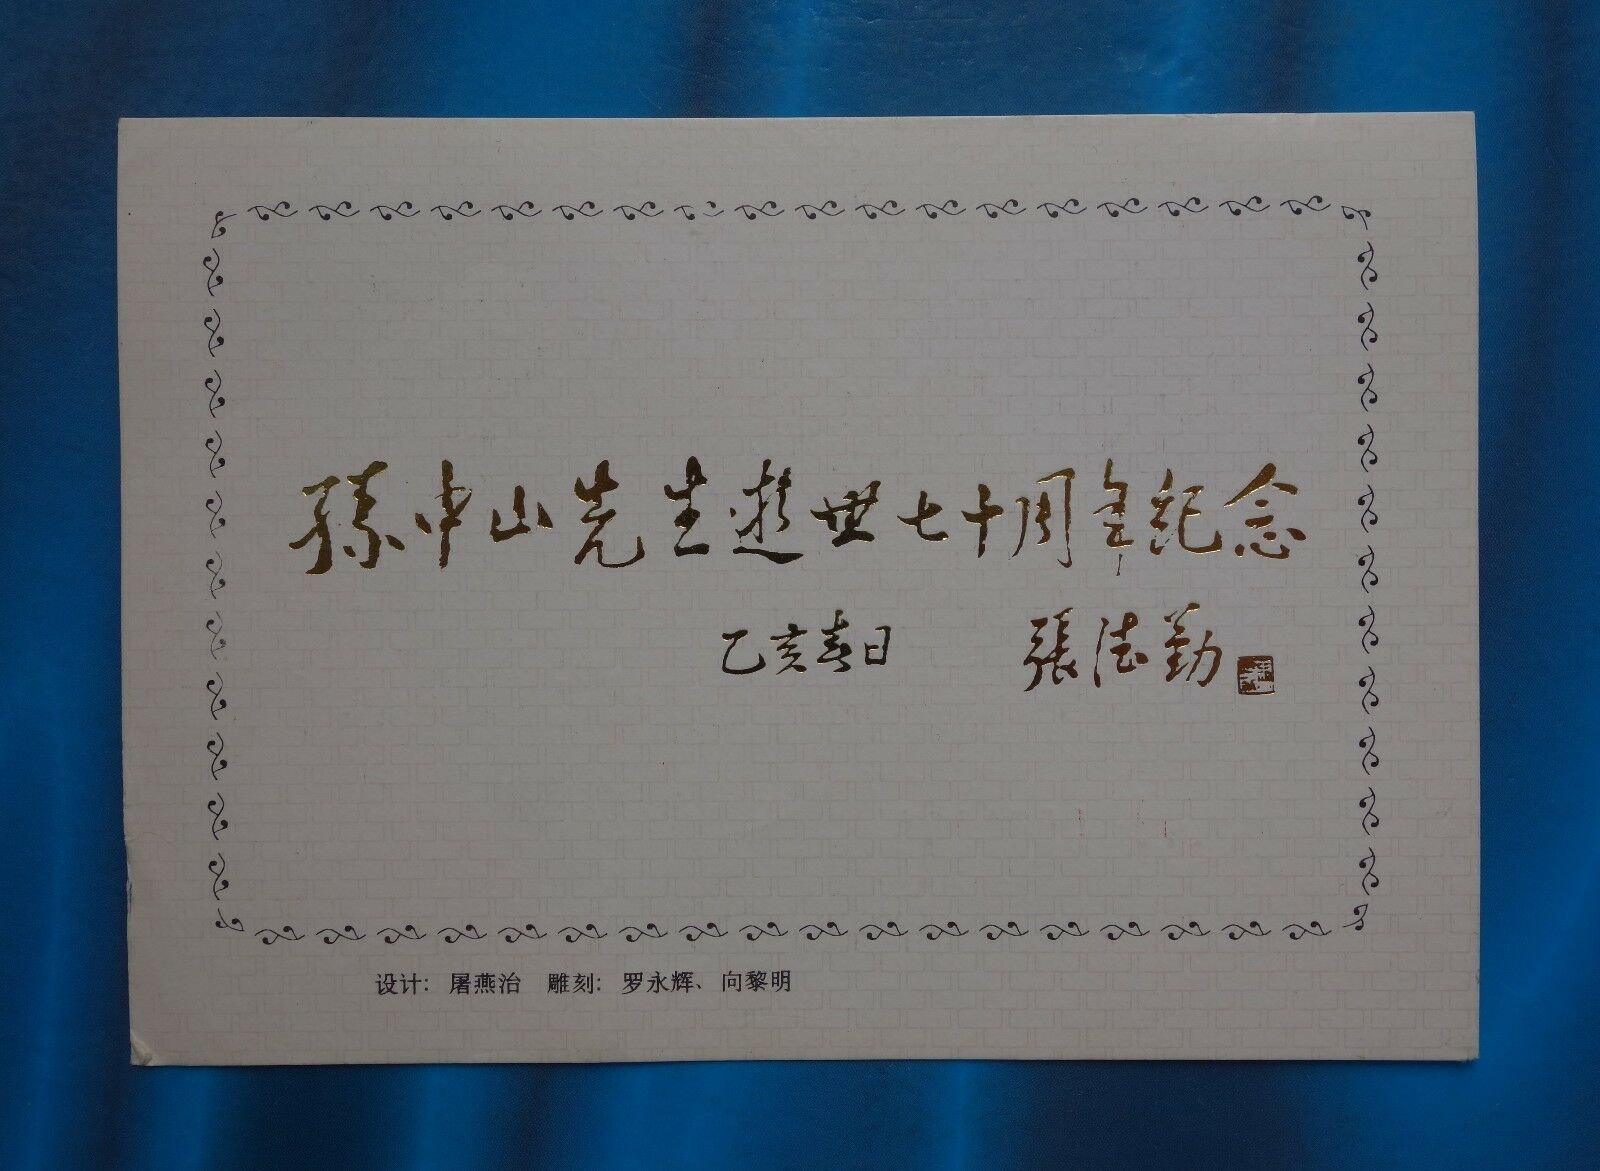 孫中山先生逝世七十周年紀念
乙亥春日 張德勤
设计：屠燕治 雕刻：罗永辉、向黎明